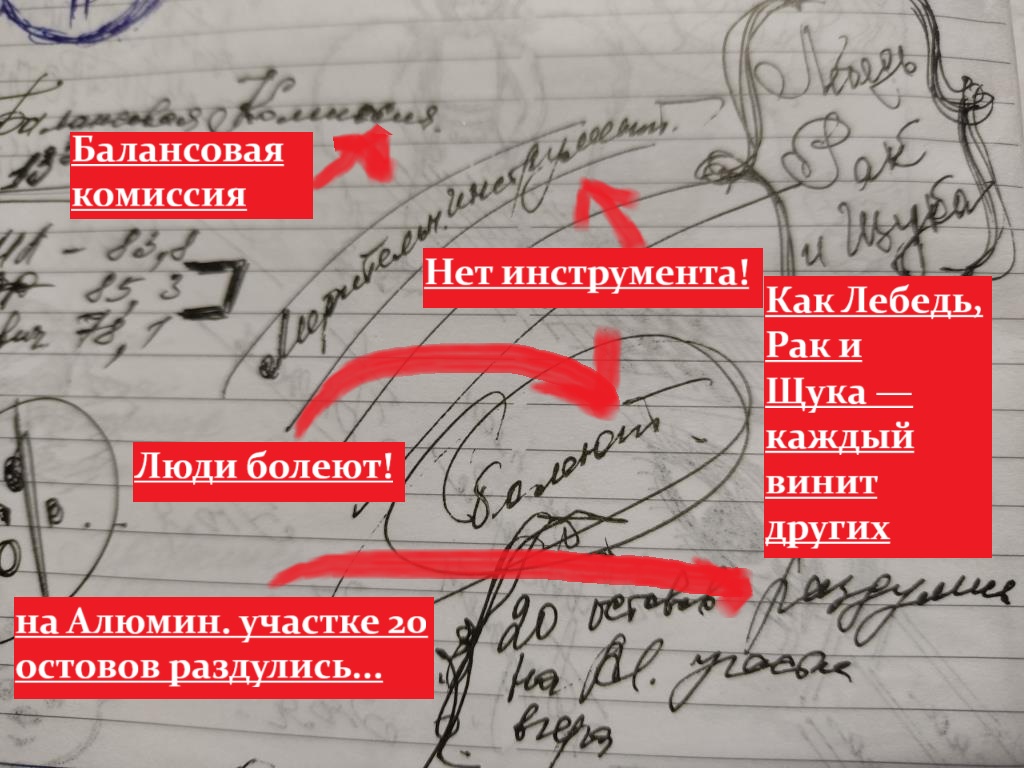 Балансовая Комиссия.
Балансовая
комиссия
13
- 83,8
85,3
78,1
Мерительн. инструмент.
Нет инструмента!
Лебедь
Рак
и Щука
Как Лебедь,
Рак и
Щука —
каждый
винит
других
Люди болеют!
Балеют
на Алюмин. участке 20
остовов раздулись...
20 остовов раздулись
на Al. участке
вчера